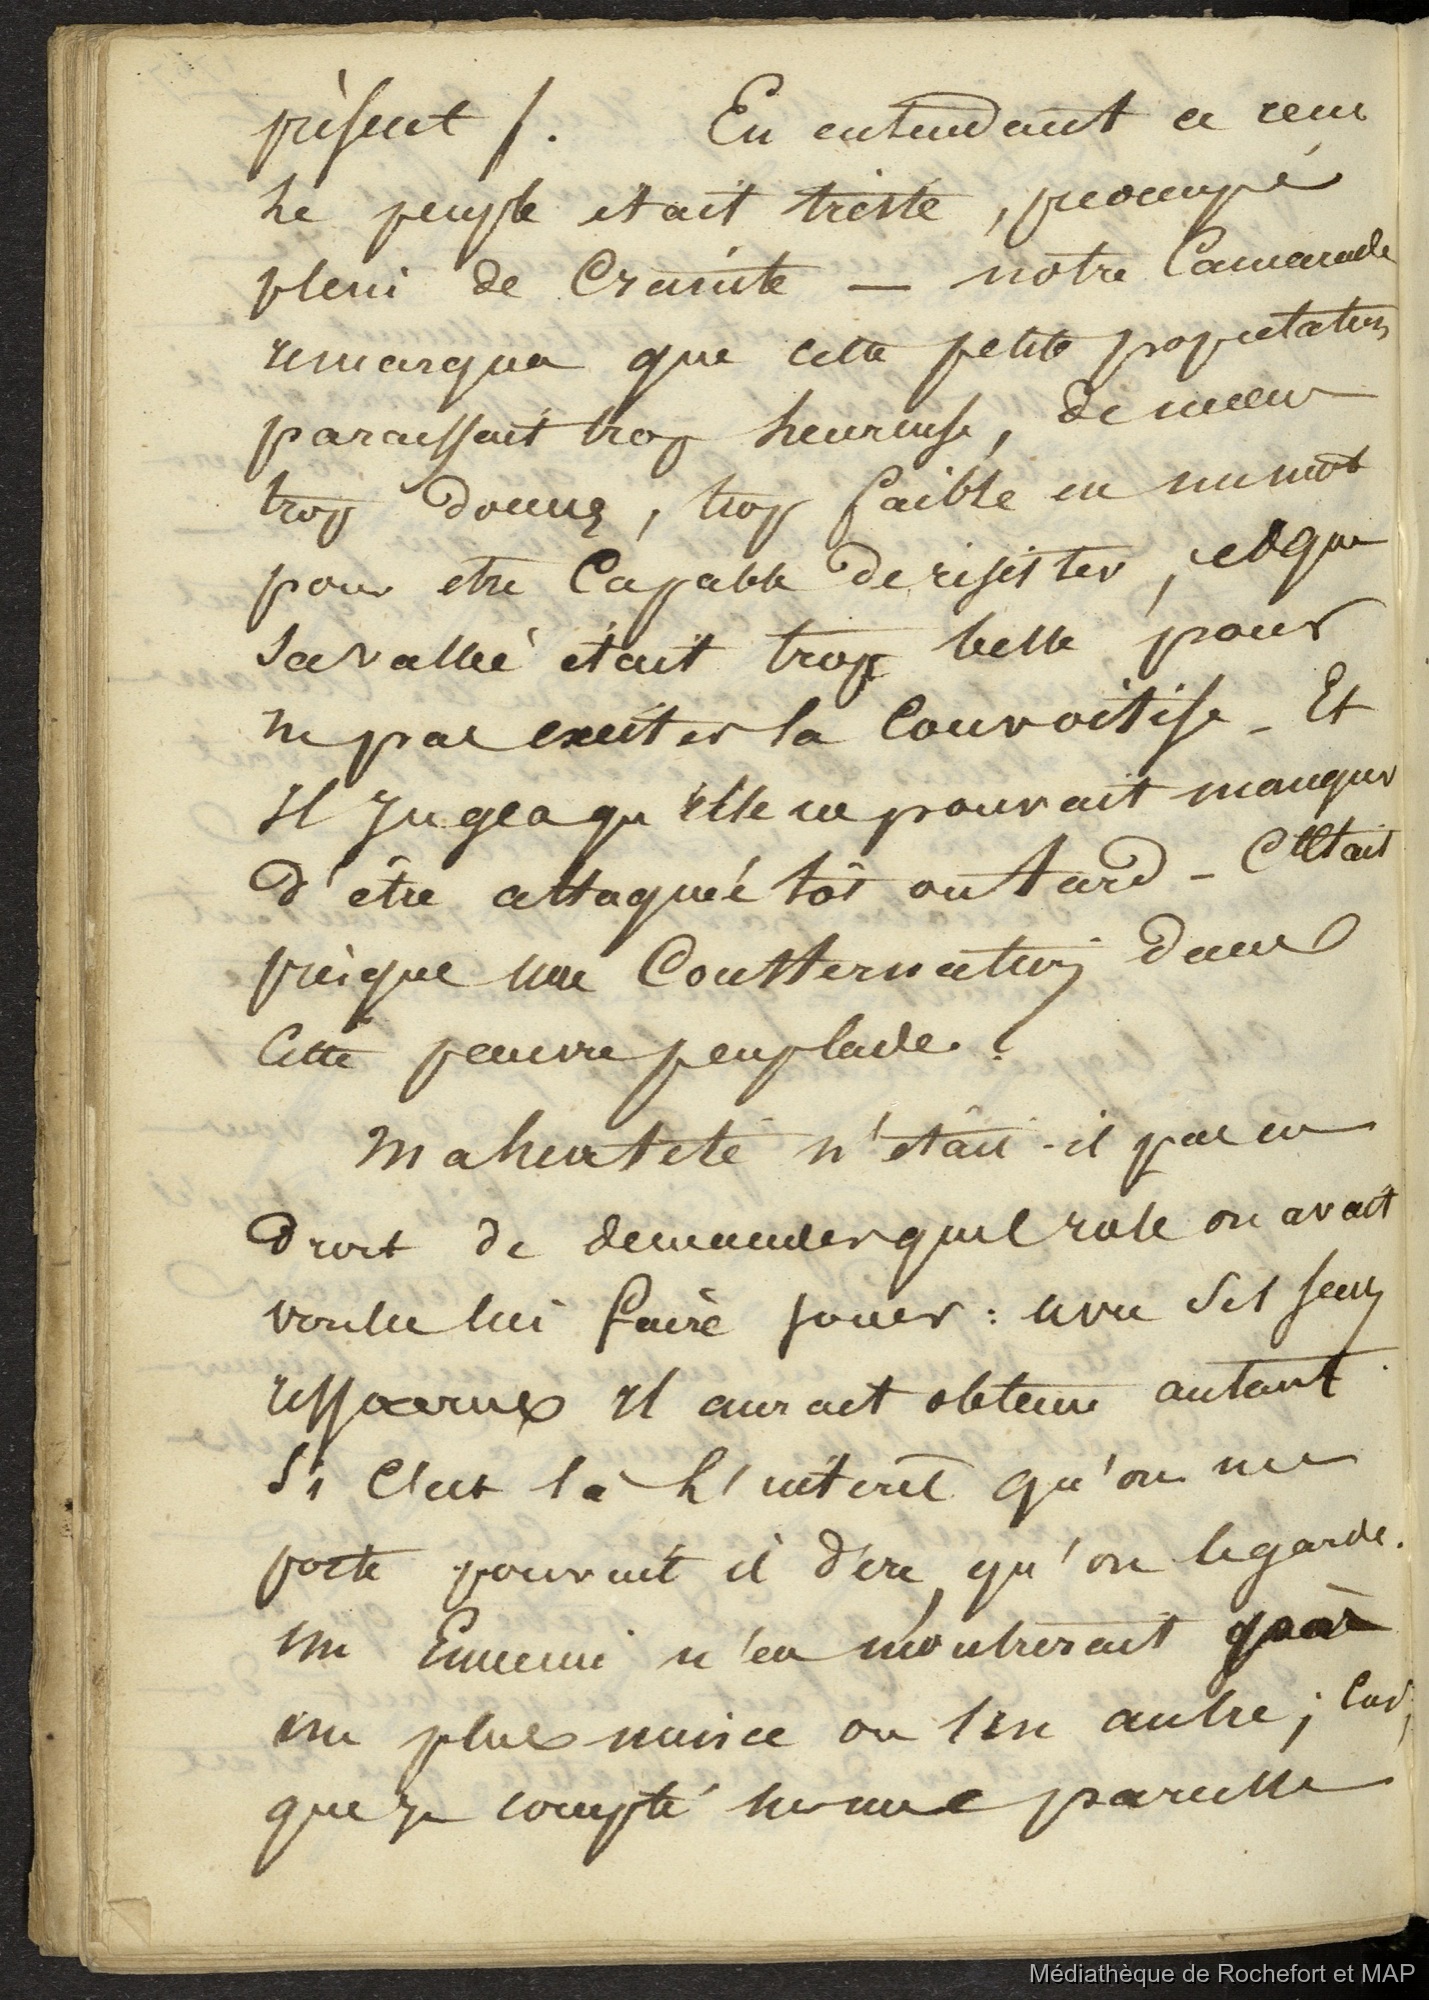 présent ). En entendant ce recu
le peuple etait triste, preocupé
plein de Crainte — notre Camarade
remarqua que cette petite population
paraissait trop heureuse, de mœurs
trop douces, trop faible en un mot
pour etre Capable de résister, et que
sa vallée était trop belle pour
ne pas exciter la Convoitise - Et
Il Jugea qu'elle ne pouvait manquer
d'être attaqueé tôt ou tard - C'Etait
presque une Consternation dans
Cette pauvre peuplade.
Maheatété n'était-il pas en
droit de demander quel role on avait
voulu lui faire jouer : avec ses seuls
ressources Il aurait obtenu autant
Si C'est là L'intéret qu'on me
porte pouvait il dire, qu'on le garde.
un Ennemi n'en montrerait pas
un plus mince ou un autre ;
que je compte sur une pareille
Médiathèque de Rochefort et MAP